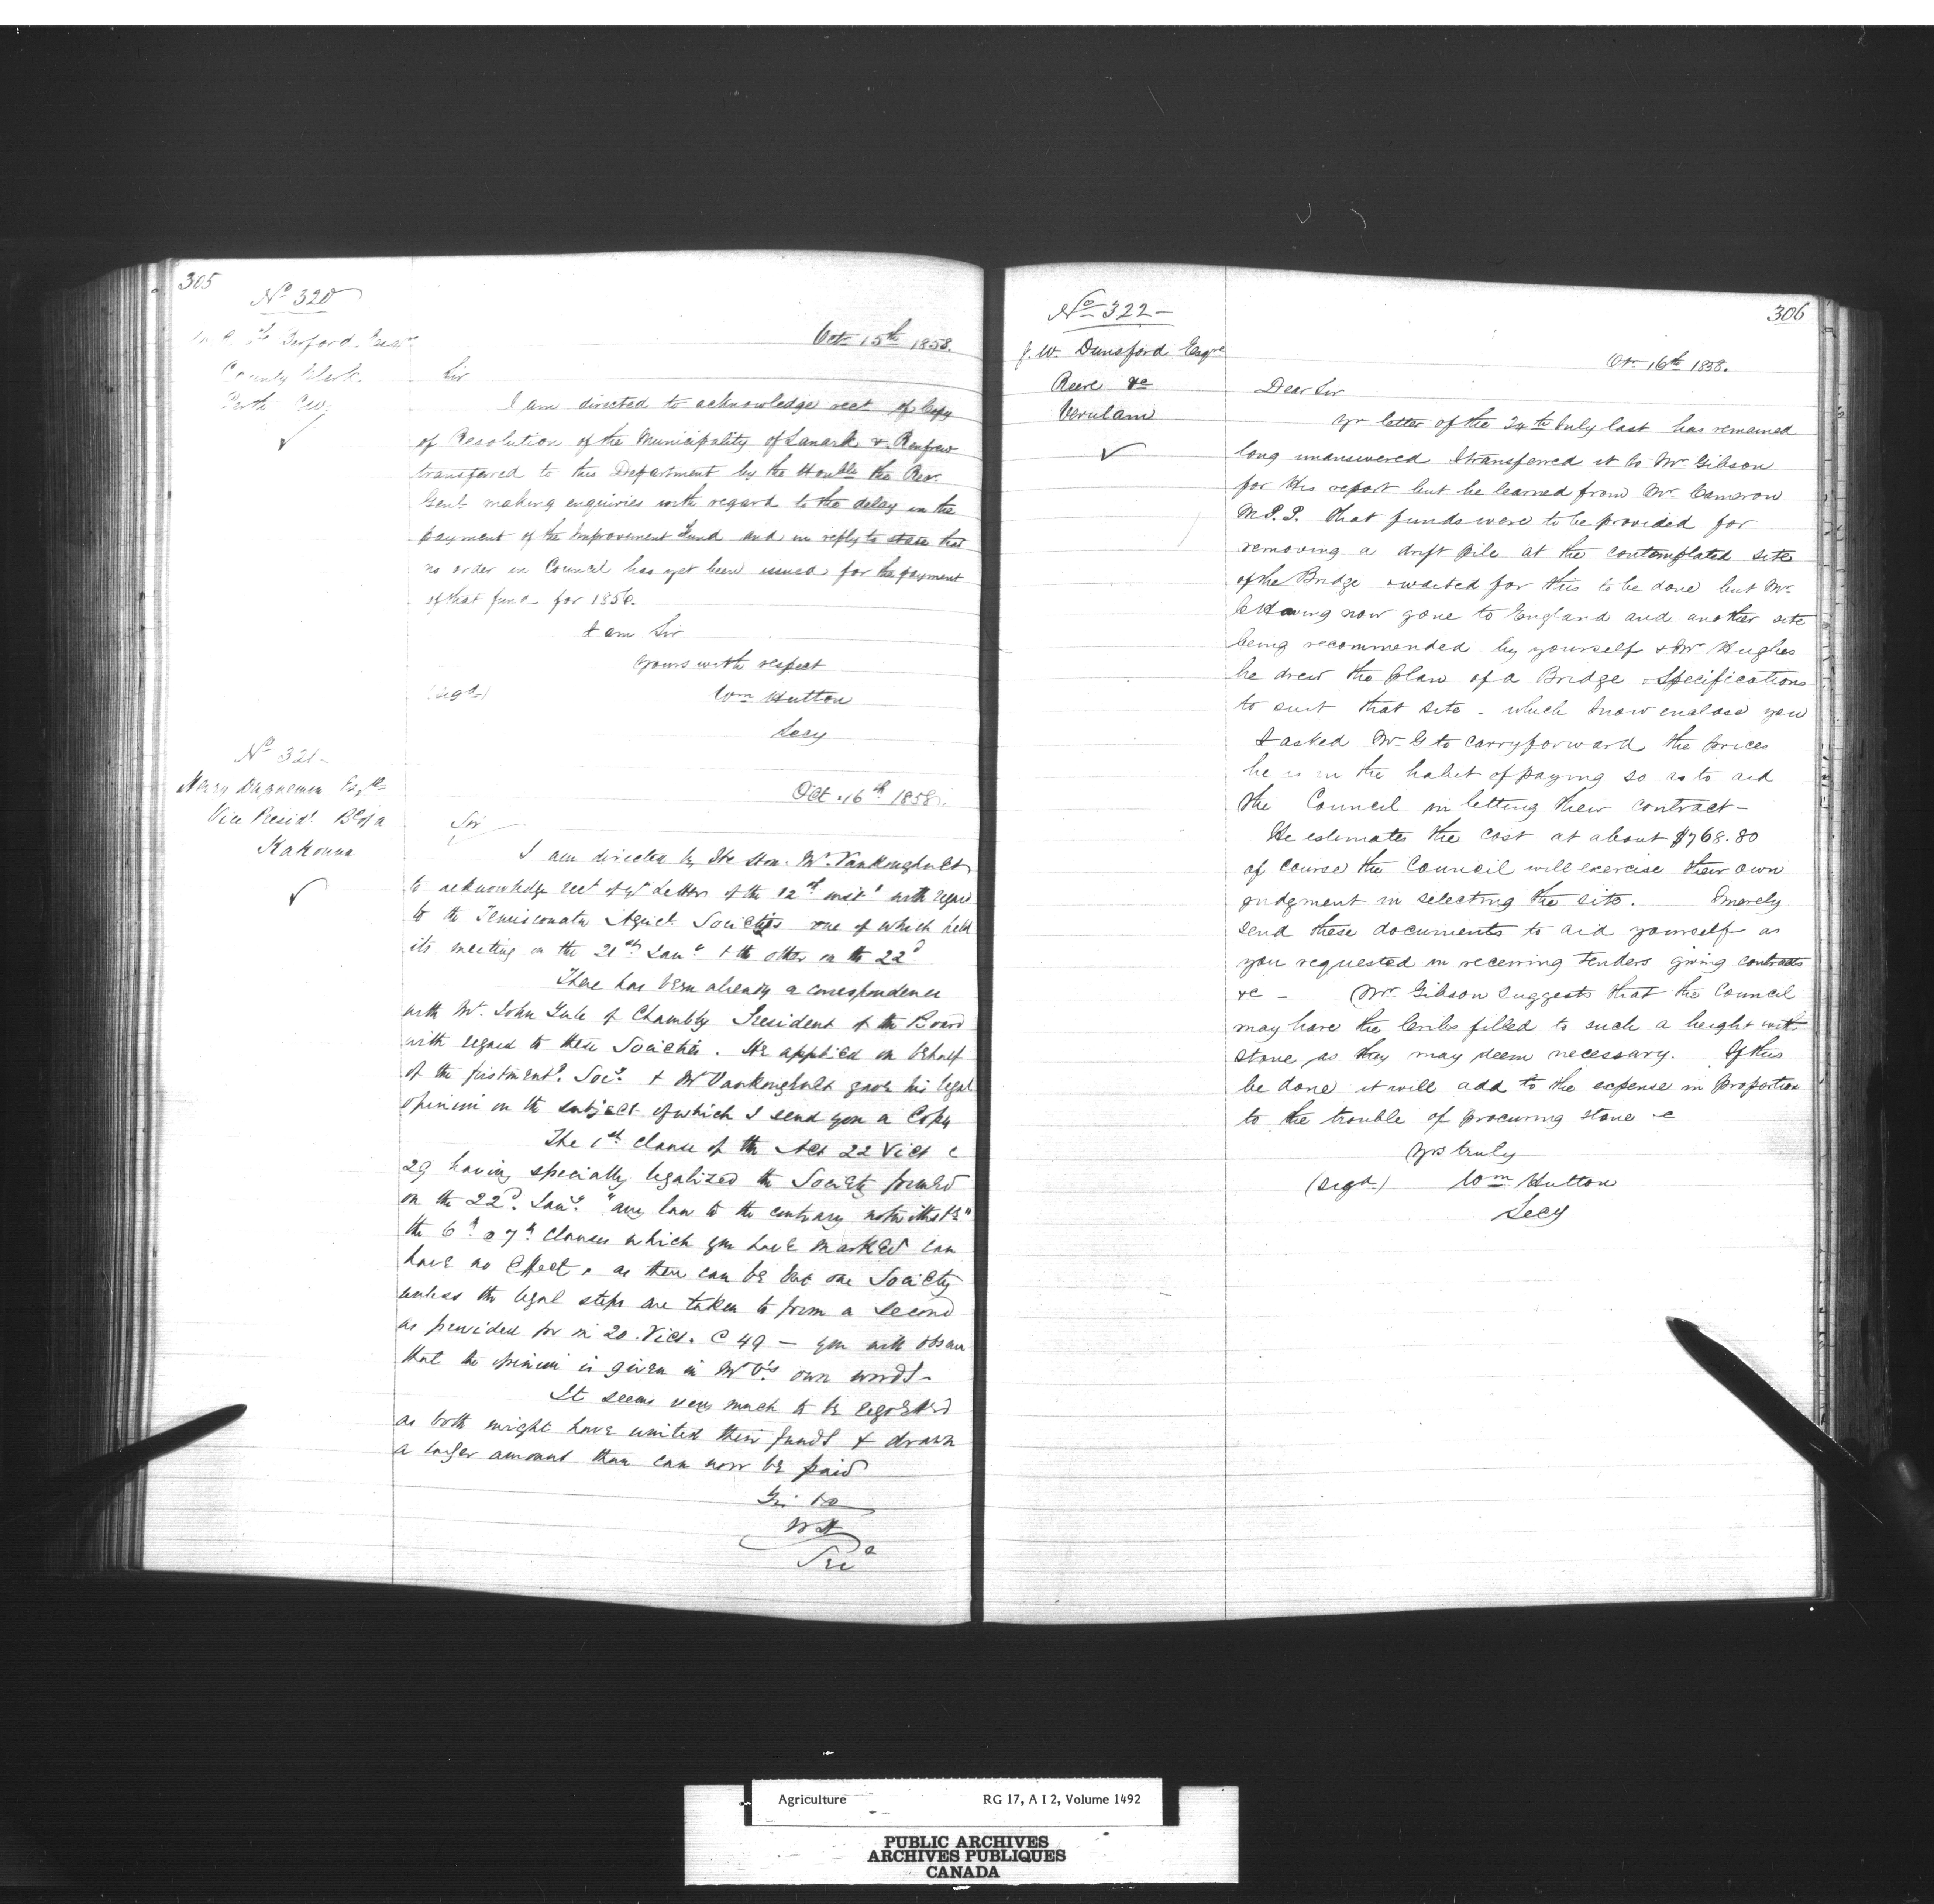 305
No 320
County Clerk
Perth CW
Oct 15th 1858.
Sir
I am directed to acknowledge rect of Copy
of Resolution of the Municipality of Lanark & Renfrew
transfered to this Department by the Honble the Rec.
Genl making enquiries with regard to the delay in the
payment of the Improvement Fund and in reply to state that
no order in Council has yet been issued for the payment
of that fund for 1856.
I am Sir
yours with respect
(sigd) Wm Hutton
Secy
No 321-
Esqre
Vice Presidt Bd of A
Kakouna
Oct. 16th 1858.
Sir
I am directed by the Hon. Mr. Vankoughnet
to acknowledge rect of yr Letter of the 12th inst with regard
to the Temisconata Agricl Societies one of which held
its meeting on the 21st Jany & the other on the 22d
There has been already a correspondence
with Mr. John Yule of Chambly President of the Board
with regard to these Societies. He applied on behalf
of the first ment.d Socy. & Mr Vankoughnet gave his legal
opinion on the subject of which I send you a Copy
The 1st clause of the Act 22 Vict c
29 having specially legalized the Society formed
on the 22d. Jany. "any law to the contrary notwithstg"
the 6th & 7th Clauses which you have marked can
have no effect, as there can be but one Society
unless the legal steps are taken to form a Second
as provided for in 20. Vict. C 49 — you will observe
that the opinion is given in Mr V's. own words-
It seems very much to be regretted
as both might have united their funds & drawn
a larger amount than can now be paid
WH
Secy
306
No 322-
J. W. Dunsford Esqre
Reeve &c
Verulam
Oct 16th 1858.
Dear Sir
Yr letter of the 24th July last has remained
long unanswered I transferred it to Mr Gibson
for His report but he learned from Mr. Cameron
M.P.P. that funds were to be provided for
removing a drift pile at the contemplated site
of the Bridge & waited for this to be done but Mr
C Having now gone to England and another site
being recommended by yourself & Mr. Hughes
he drew the plan of a Bridge & Specifications
to suit that site - which I now enclose you
I asked Mr G to carry forward the prices
he is in the habit of paying so as to aid
the Council in letting their contract-
He estimates the cost at about $768.80
of course the Council will exercise their own
judgment in selecting the site. I merely
send these documents to aid yourself as
you requested in receiving tenders giving contracts
&c - Mr Gibson suggests that the Council
may have the Cribs filled to such a height with
stone as they may deem necessary. If this
be done it will add to the expense in proportion
to the trouble of procuring stone &c
Yrs truly
(sigd) Wm Hutton
Secy
Agriculture RG 17, A I 2, Volume 1492
PUBLIC ARCHIVES
ARCHIVES PUBLIQUES
CANADA